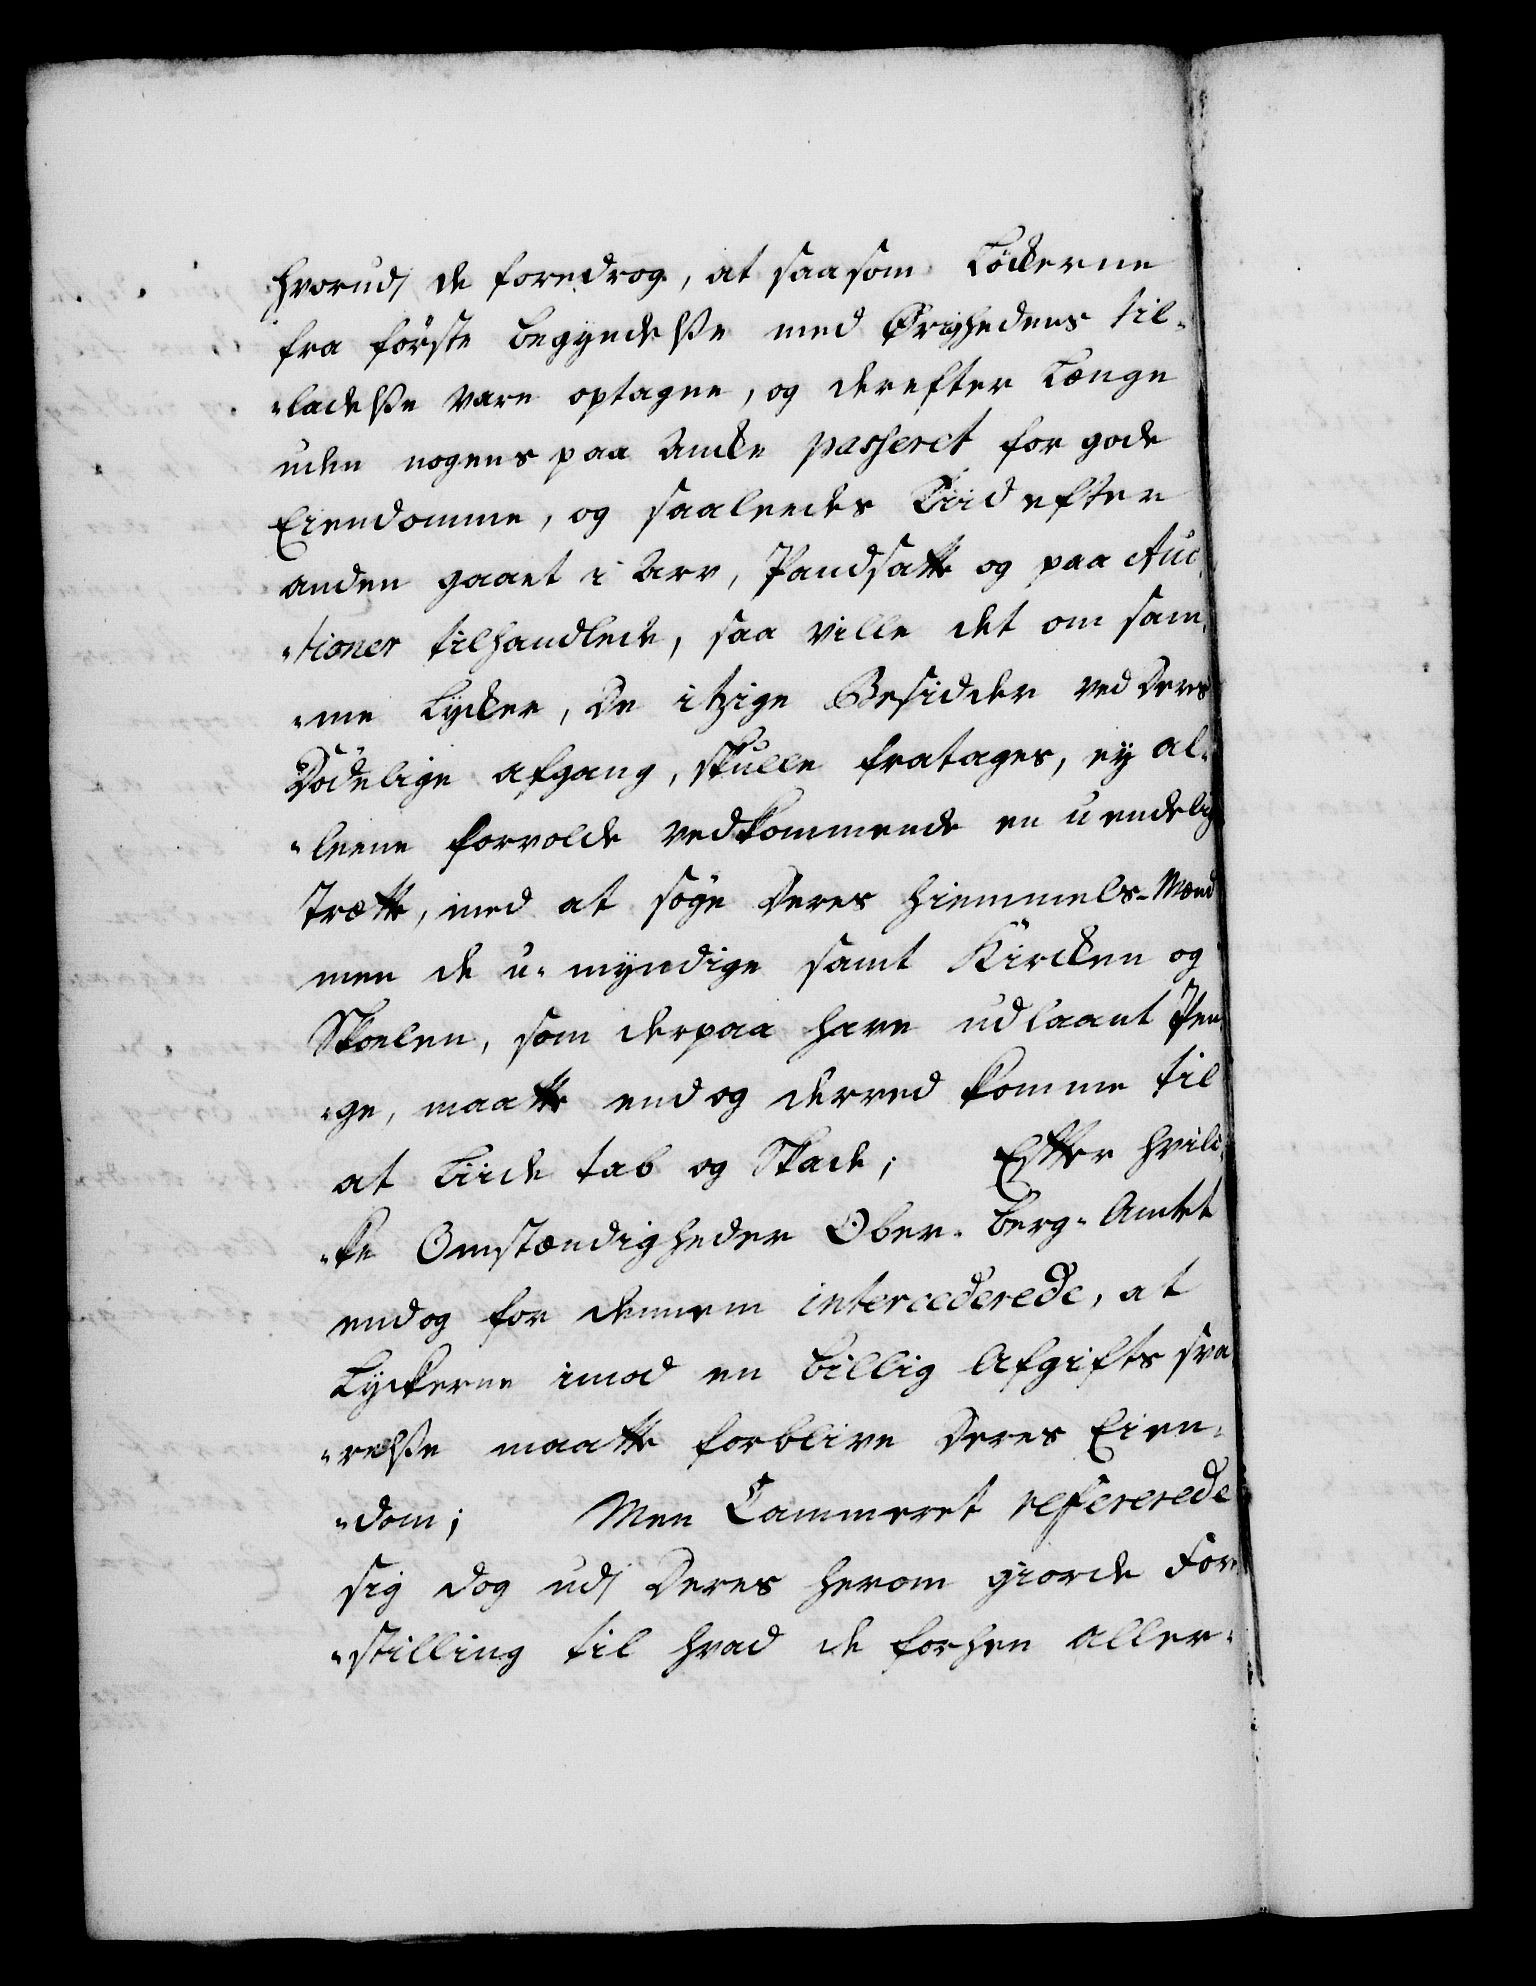 hvorudj de foredrog, at saasom Löckerne
fra förste begyndelße med Øvrighedens til-
-ladelße vare optagne, og derefter længe
uden nogens paa Ancke passeret for gode
Eiendomme, og saaleedes Tiid efter
anden gaaet i Arv, Pandsatte og paa Auc-
-tioner tilhandlede, saa ville det om sam-
-me Lycker, de itzige Besidder ved deres
Dödelige afgang, skulle fratages, ey al-
-leene forvolde vedkommende en uendelig
trætte, med at söge deres Hiemmels-Mænd
men de u-myndige samt Kircken og
Skoelen, som derpaa have udlaant Pen-
-ge, maatte endog derved komme til
at Liide tab og Skade; Efter hvilc-
-ke Omstændigheder Ober-Berg-Amtet
endog for dennem intercederede, at
Lyckerne imod en billig Afgifts sva-
-relße maatte forblive deres Eien-
-dom; Men Cammeret refererede
sig dog udj deres herom giorde For-
-stilling til hvad de forhen aller-